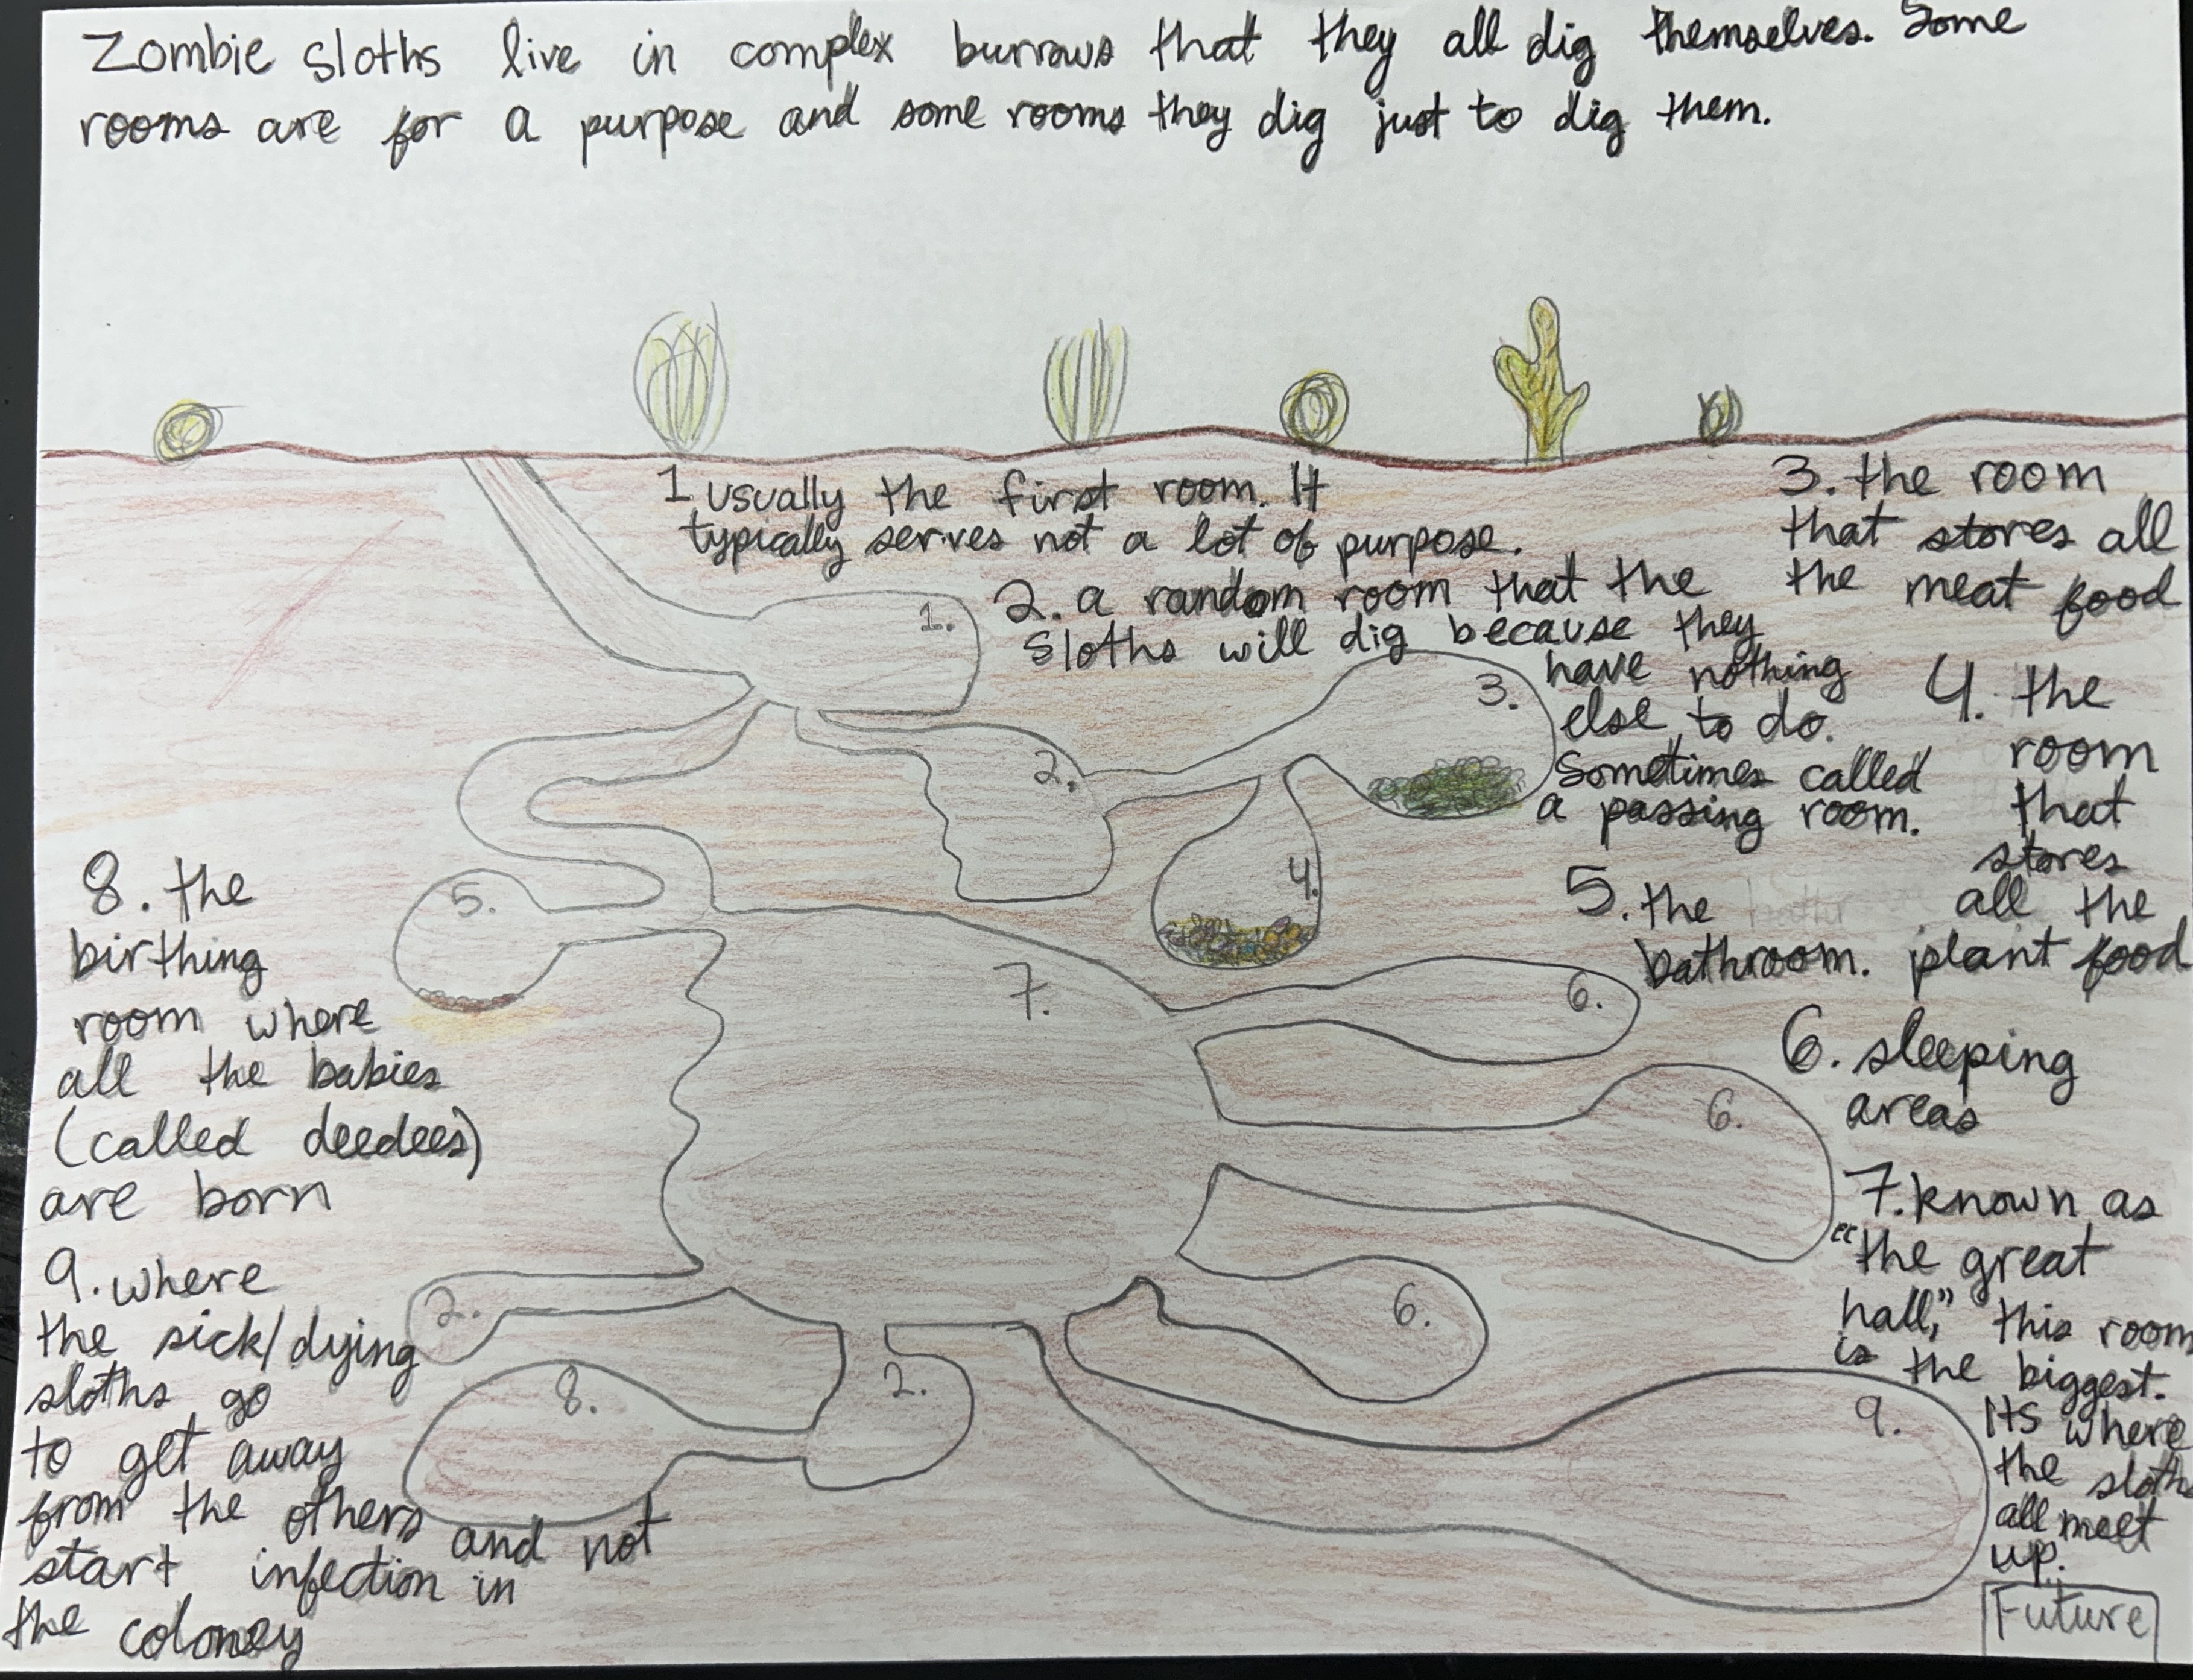 Zombie Sloths live in complex burrows that they all dig themselves. Some
rooms are for a purpose and some rooms they dig just to dig them.
1 usually the first room. It
typically serves not a lot of purpose.
2. a random room that the
sloths will dig because they
have nothing
else to do.
Sometimes called
a passing room.
3. the room
that stores all
the meat food
4. the
room
that
stores
all the
plant food
5. the
bathroom.
6. sleeping
areas
7. known as
"the great
hall," this room
is the biggest.
Its where
the sloths
all meet
up.
8. the
birthing
room where
all the babies
(called deedees)
are born
9. where
the sick/dying
sloths go
to get away
from the others and not
start infection in
the coloney
1.
2.
3.
4.
5.
6.
7.
6.
6.
2.
2.
8.
9.
Future